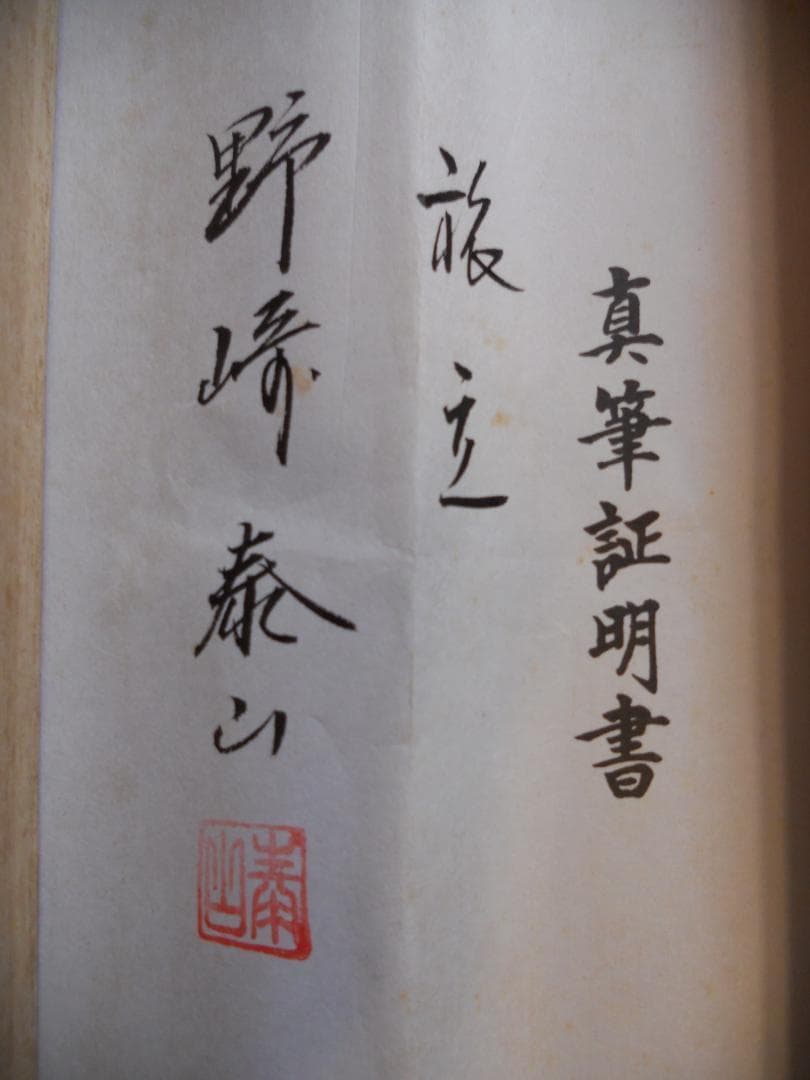 真筆証明書
旅立
野崎泰山
泰山